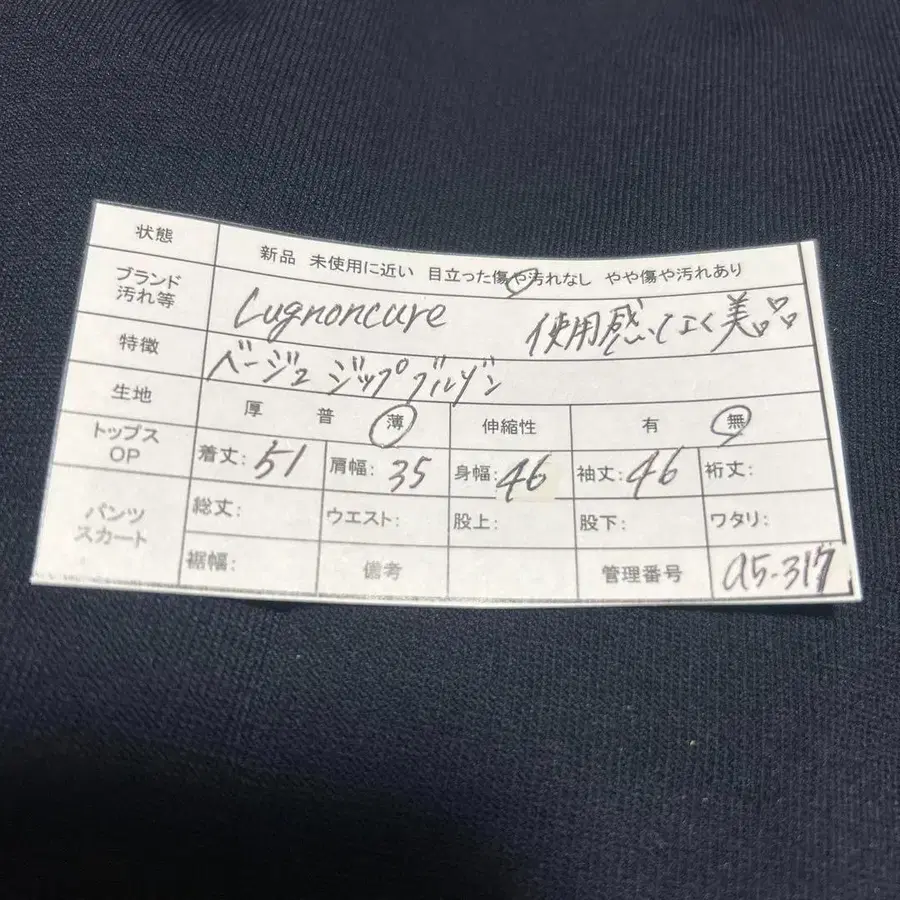 状態 新品 未使用に近い 目立った傷や汚れなし やや傷や汚れあり
ブランド
汚れ等
Lugnoncure 使用感なく美品
特徴 ベージュ ジップブルゾン
生地 厚 普 薄 伸縮性 有 無
トップス
OP
着丈: 51 肩幅: 35 身幅: 46 袖丈: 46 裄丈:
パンツ
スカート
総丈: ウエスト: 股上: 股下: ワタリ:
裾幅: 備考 管理番号 a5-317